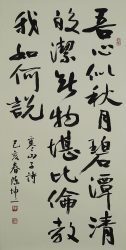 吾心似秋月碧潭清
皎潔無物堪比倫教
我如何說
寒山子詩
己亥春陸坤一